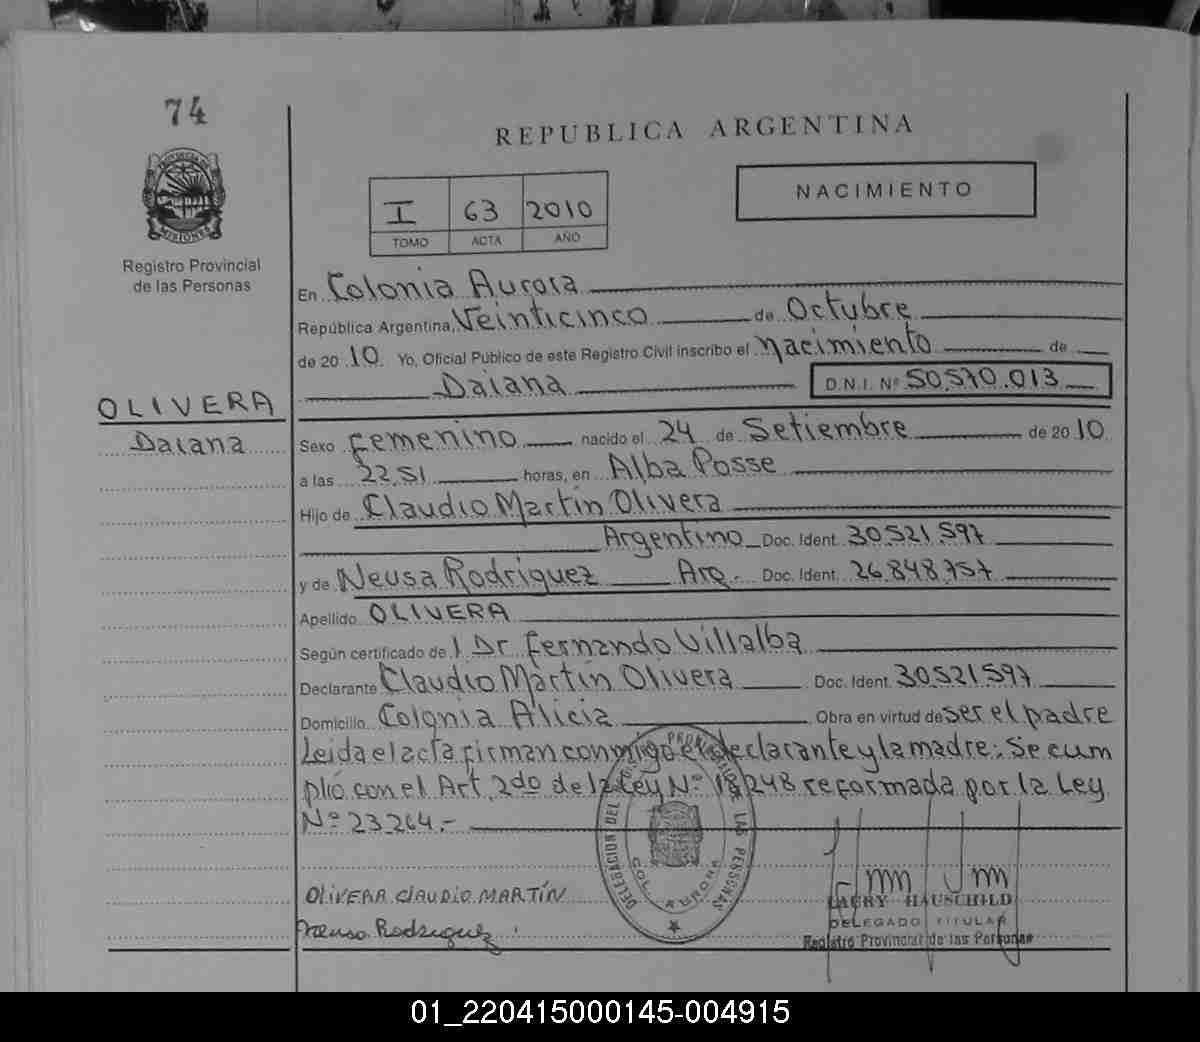 74
REPUBLICA ARGENTINA
NACIMIENTO
I 63 2010
TOMO ACTA AÑO
PROVINCIA DE
MISIONES
Registro Provincial
de las Personas
En Colonia Aurora
República Argentina, Veinticinco de Octubre
de 2010. Yo, Oficial Público de este Registro Civil inscribo el nacimiento de
Daiana D.N.I. Nº 50.570.013
OLIVERA
Daiana
Sexo Femenino nacido el 24 de Setiembre de 2010.
a las 22,51 horas, en Alba Posse
Hijo de Claudio Martín Olivera
Argentino Doc. Ident. 30.521.597
y de Neusa Rodriguez Arg. Doc. Ident. 26.848.757
Apellido OLIVERA
Según certificado de l Dr Fernando Villalba
Declarante Claudio Martín Olivera Doc. Ident. 30.521.597
Domicilio Colonia Alicia Obra en virtud de ser el padre
Leida el acta firman conmigo el declarante y la madre: Se cum
plió con el Art. 2do de la Ley Nº 18.248 reformada por la Ley
Nº 23.264.-
DELEGACION DEL REGISTRO PROVINCIAL DE LAS PERSONAS
COL. AURORA
OLIVERA CLAUDIO MARTÍN
Neusa Rodriguez
LAURY HAUSCHILD
DELEGADO TITULAR
Registro Provincial de las Personas
01_220415000145-004915